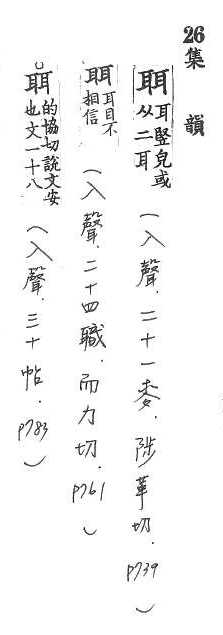 26集韻
聑耳豎皃或从二耳(入聲.二十一麥.陟革切.p739)
聑耳目不相信(入聲.二十四職.而力切.p761)
聑的協切說文安也文一十八(入聲.三十帖.p783)